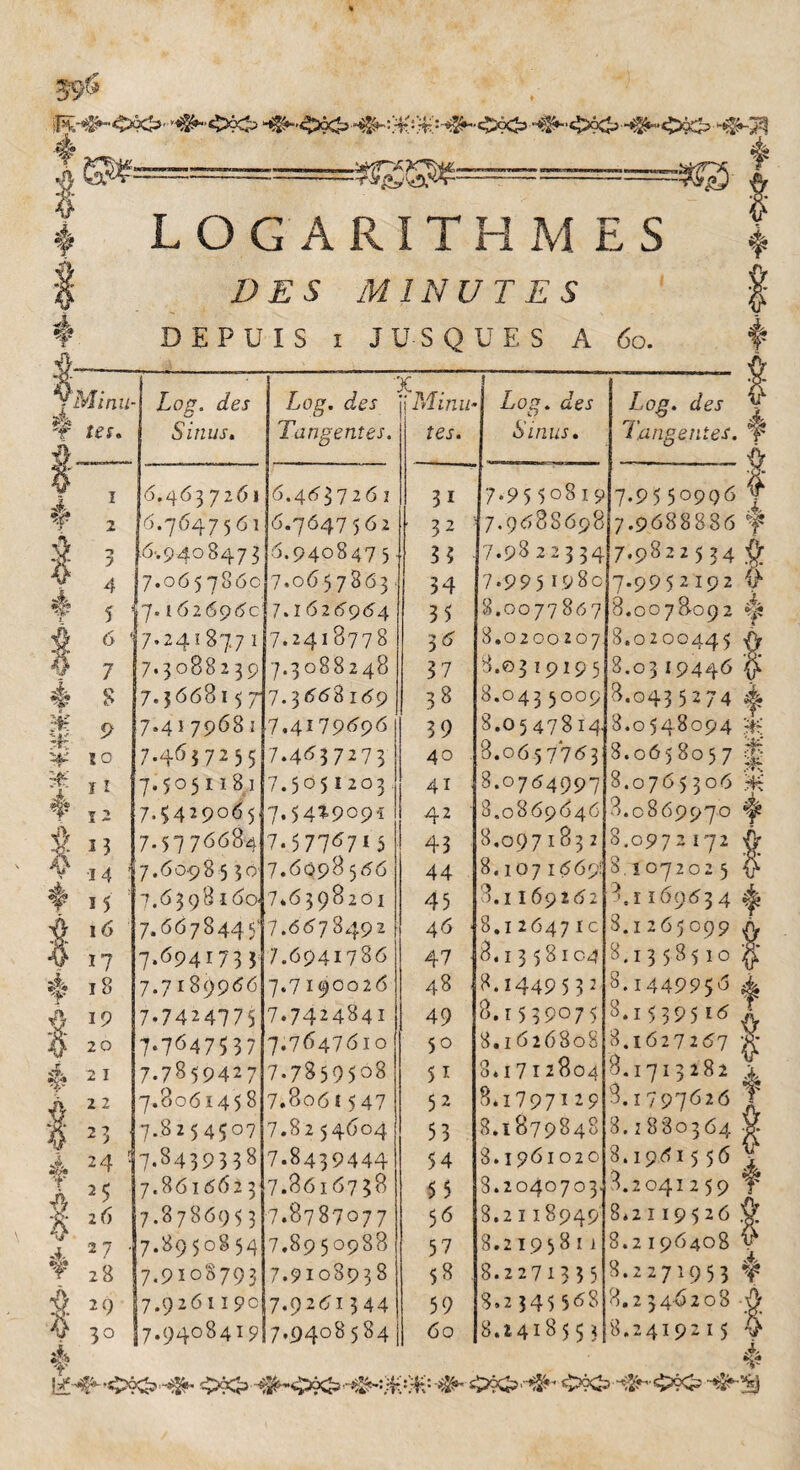 396
LOGARITHMES
DES MINUTES
DEPUIS 1 JUSQUES A 60.
Minu- Log. des Log. des Minu- Log. des Log. des
tes. Sinus. Tangentes. tes. Sinus. Tangentes.
1 6.4637261 6.4637261 31 7.9550819 7.9550996
2 6.7647561 6.7647562 32 7.9688698 7.9688886
3 6.9408473 6.9408475 33 7.9822334 7.9822534
4 7.0657860 7.0657863 34 7.9951980 7.9952192
5 7.1626960 7.1626964 35 8.0077867 8.0078092
6 7.2418771 7.2418778 36 8.0200207 8.0200445
7 7.3088239 7.3088248 37 8.0319195 8.0319446
8 7.3668157 7.3668169 38 8.0435009 8.0435274
9 7.4179681 7.4179696 39 8.0547814 8.0548094
10 7.4637255 7.4637273 40 8.0657763 8.0658057
11 7.5051181 7.5051203 41 8.0764997 8.0765306
12 7.5429065 7.5429091 42 8.0869646 8.0869970
13 7.5776684 7.5776715 43 8.0971832 8.0972172
14 7.6098530 7.6098566 44 8.1071669 8.1072025
15 7.6398160 7.6398201 45 8.1169262 8.1169634
16 7.6678445 7.6678492 46 8.1264710 8.1265099
17 7.6941733 7.6941786 47 8.1358104 8.1358510
18 7.7189966 7.7190026 48 8.1449532 8.1449956
19 7.7424775 7.7424841 49 8.1539075 8.1539516
20 7.7647537 7.7647610 50 8.1626808 8.1627267
21 7.7859427 7.7859508 51 8.1712804 8.1713282
22 7.8061458 7.8061547 52 8.1797129 8.1797626
23 7.8254507 7.8254604 53 8.1879848 8.1880364
24 7.8439338 7.8439444 54 8.1961020 8.1961556
25 7.8616623 7.8616738 55 8.2040703 8.2041259
26 7.8786953 7.8787077 56 8.2118949 8.2119526
27 7.8950854 7.8950988 57 8.2195811 8.2196408
28 7.9108793 7.9108938 58 8.2271335 8.2271953
29 7.9261190 7.9261344 59 8.2345568 8.2346208
30 7.9408419 7.9408584 60 8.2418553 8.2419215